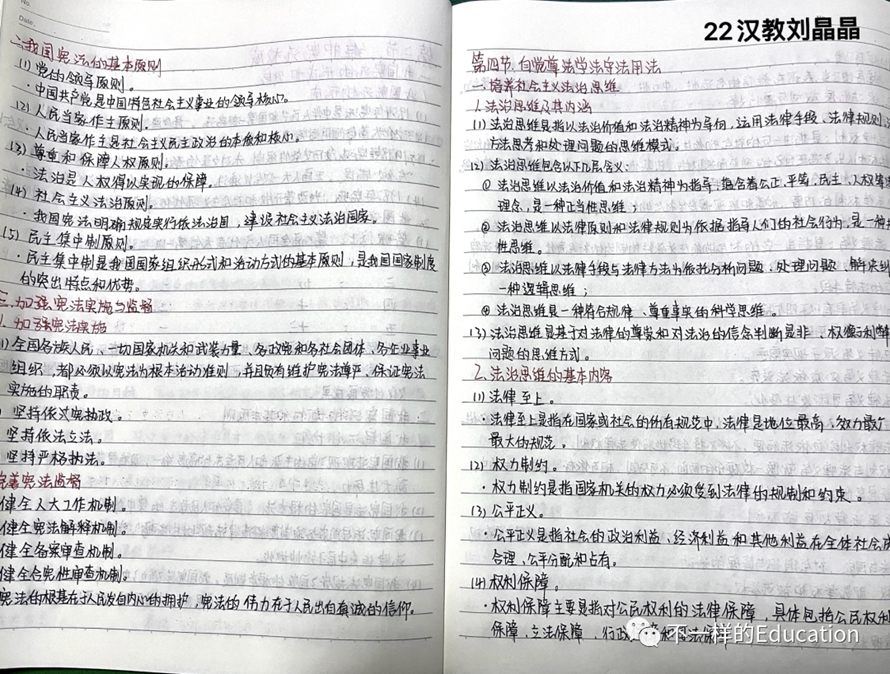 No.
Date.
二、我国宪法的基本原则
(1) 党的领导原则。
·中国共产党是中国特色社会主义事业的领导核心。
(2) 人民当家作主原则.
·人民当家作主是社会主义民主政治的本质和核心。
(3) 尊重和保障人权原则。
·法治是人权得以实现的保障。
(4) 社会主义法治原则。
·我国宪法明确规定实行依法治国，建设社会主义法治国家。
(5) 民主集中制原则。
·民主集中制是我国国家组织形式和活动方式的基本原则，是我国国家制度
的突出特点和优势。
三、加强宪法实施与监督
1. 加强宪法实施
1) 全国各族人民、一切国家机关和武装力量、各政党和各社会团体、各企业事业
组织，都必须以宪法为根本活动准则，并且负有维护宪法尊严、保证宪法
实施的职责。
坚持依宪执政。
坚持依法立法。
坚持严格执法。
完善宪法监督
健全人大工作机制。
健全宪法解释机制。
健全备案审查机制。
健全合宪性审查机制。
宪法的根基在于人民发自内心的拥护，宪法的伟力在于人民出自真诚的信仰。
22汉教刘晶晶
第四节 自觉尊法学法守法用法
一、培养社会主义法治思维
1.法治思维及其内涵
(1) 法治思维是指以法治价值和法治精神为导向，运用法律手段、法律规则、
方法思考和处理问题的思维模式。
(2) 法治思维包含以下几层含义：
① 法治思维以法治价值和法治精神为指导，蕴含着公正、平等、民主、人权等
理念，是一种正当性思维；
② 法治思维以法律原则和法律规则为依据指导人们的社会行为，是一种
性思维。
③ 法治思维以法律手段与法律方法为依托分析问题、处理问题、解决
一种逻辑思维；
④ 法治思维是一种符合规律、尊重事实的科学思维。
(3) 法治思维是基于对法律的尊崇和对法治的信念判断是非、权衡利
问题的思维方式。
2. 法治思维的基本内容
(1) 法律至上。
·法律至上是指在国家或社会的所有规范中，法律是地位最高、效力最广
最大的规范。
(2) 权力制约。
·权力制约是指国家机关的权力必须受到法律的规制和约束。
(3) 公平正义。
·公平正义是指社会的政治利益、经济利益和其他利益在全体社会成
合理、公平分配和占有。
(4) 权利保障。
·权利保障主要是指对公民权利的法律保障，具体包括公民权利
保障、立法保障、行政
不一样的Education